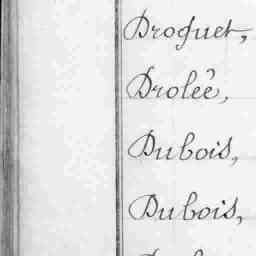 Droguet,
Drolée,
Dubois,
Dubois,